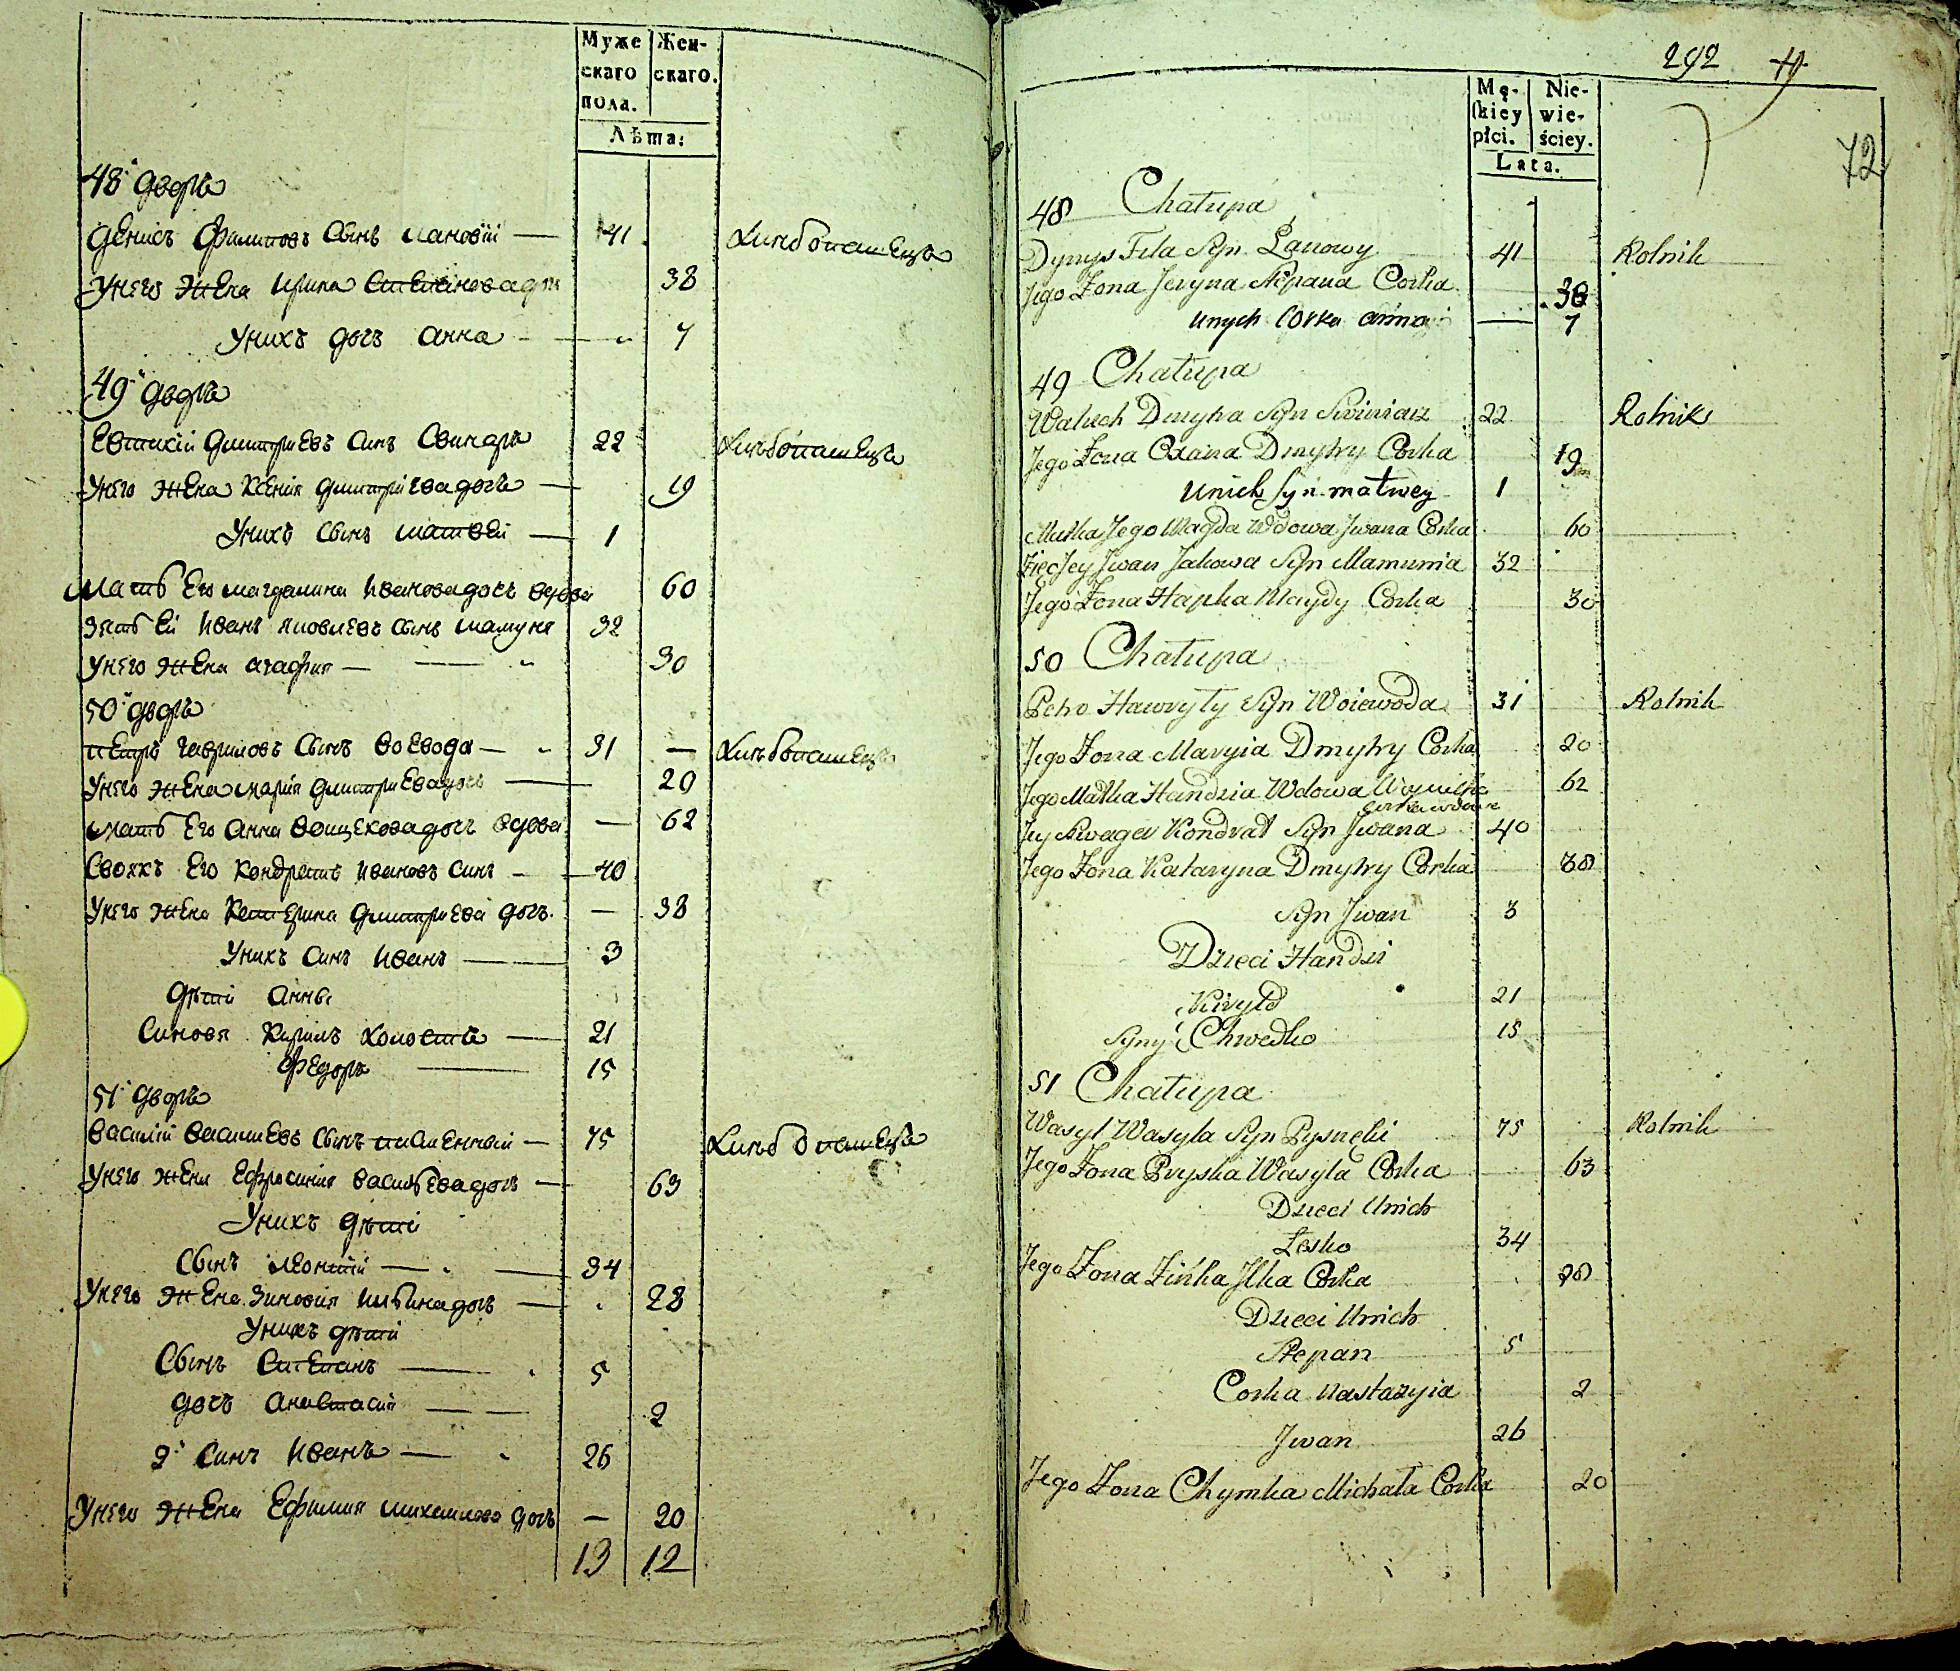 Муже
скаго
пола.
Жен-
скаго.
Лѣта:
48 дворъ
Денисъ Филиповъ сынъ Лановїй — 41 Хлѣбопашецъ
У него жена Ирина Степанова дочь 38
У нихъ дочъ Анна 7
49 дворъ
Евтихїй Дмитриевъ синъ Свинаръ 22 Хлѣбопашецъ
У него жена Ксения Дмитрїева дочъ — 19
У нихъ сынъ Матвей — 1
Мать его Магдалина Иванова дочъ вдова 60
Зять ей Иванъ Яковлевъ сынъ Мамуня 32
У него жена Агафия — — 30
50 дворъ
Петръ Гавриловъ сынъ Воевода — 31 — Хлѣбопашецъ
У него жена Марїя Дмитриева дочъ — 20
Мать его Анна Войцехова дочъ вдова — 62
Своякъ его Кондратъ Ивановъ синъ — 40
У него жена Катерина Дмитриева дочъ — 38
У нихъ синъ Иванъ — 3
Дѣти Анны
Синовя Кирилъ холостъ — 21
Федоръ — 15
51 дворъ
Василїй Васильевъ сынъ Писменный — 75 Хлѣбопашецъ
У него жена Ефросиния Васильева дочъ — 63
У нихъ дѣти
Сынъ Леонтїй — — 34
У него жена Зиновия Ильина дочъ — 28
У нихъ дѣти
Сынъ Степанъ — 5
дочъ Анастасия — — 2
2 синъ Иванъ — 26
У него жена Ефимия Михаилова дочъ — 20
13 12
292
72
Mę-
ſkiey
płci.
Nie-
wie-
ściey.
Lata.
48 Chałupa
Dynys Fila Syn Łanowy 41 Rolnik
Jego Żona Jeryna Stepana Corka 38
Unych Corka anna — 7
49 Chałupa
Dmytra Syn Swiniarz 22 Rolnik
Jego Żona Oxana Dmytry Corka 19
Unich Syn matwey 1
Matka Jego Magda Wdowa Jwana Corka 60
Zięć Jey Jwan Jakowa Syn Mamunia 32
Jego Żona Hapka Magdy Corka 30
50 Chałupa
Petro Hawryły Syn Woiewoda 31 Rolnik
Jego Żona Maryia Dmytry Corka 20
Jego Matka Handzia Wdowa 62
Jey Szwager Kondrat Syn Jwana 40
Jego Żona Kataryna Dmytry Corka 38
Syn Jwan 3
Dzieci Handzi
Kiryło 21
Syny Chwedko 15
51 Chałupa
Wasyl Wasyla Syn 75 Rolnik
Jego Żona Pryska Wasyla Corka 63
Dzieci Unich
Lesko 34
Jego Żona Zińka Jlka Corka 28
Dzieci Unich
Stepan 5
Corka Nastazyia 2
Jwan 26
Jego Żona Chymka Michała Corka 20